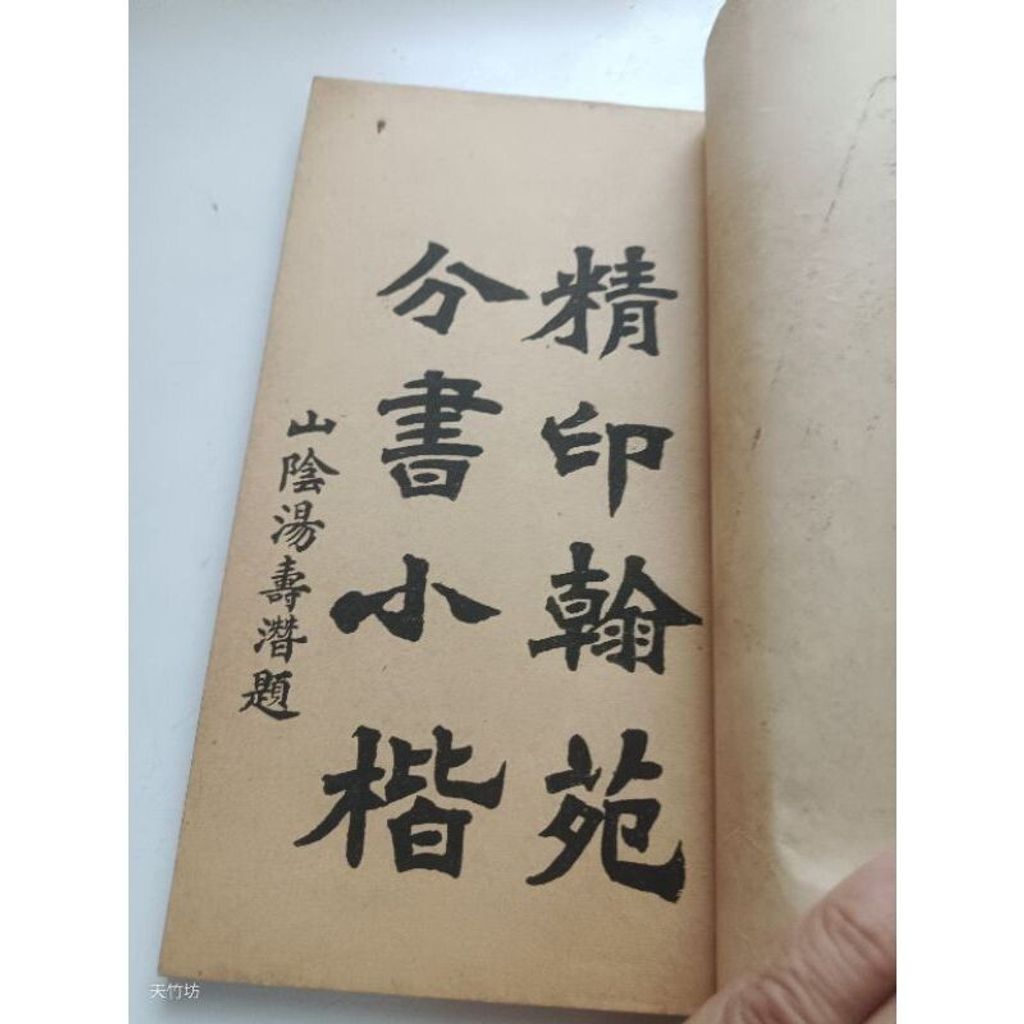 精印翰苑
分書小楷
山陰湯壽潛題
天竹坊